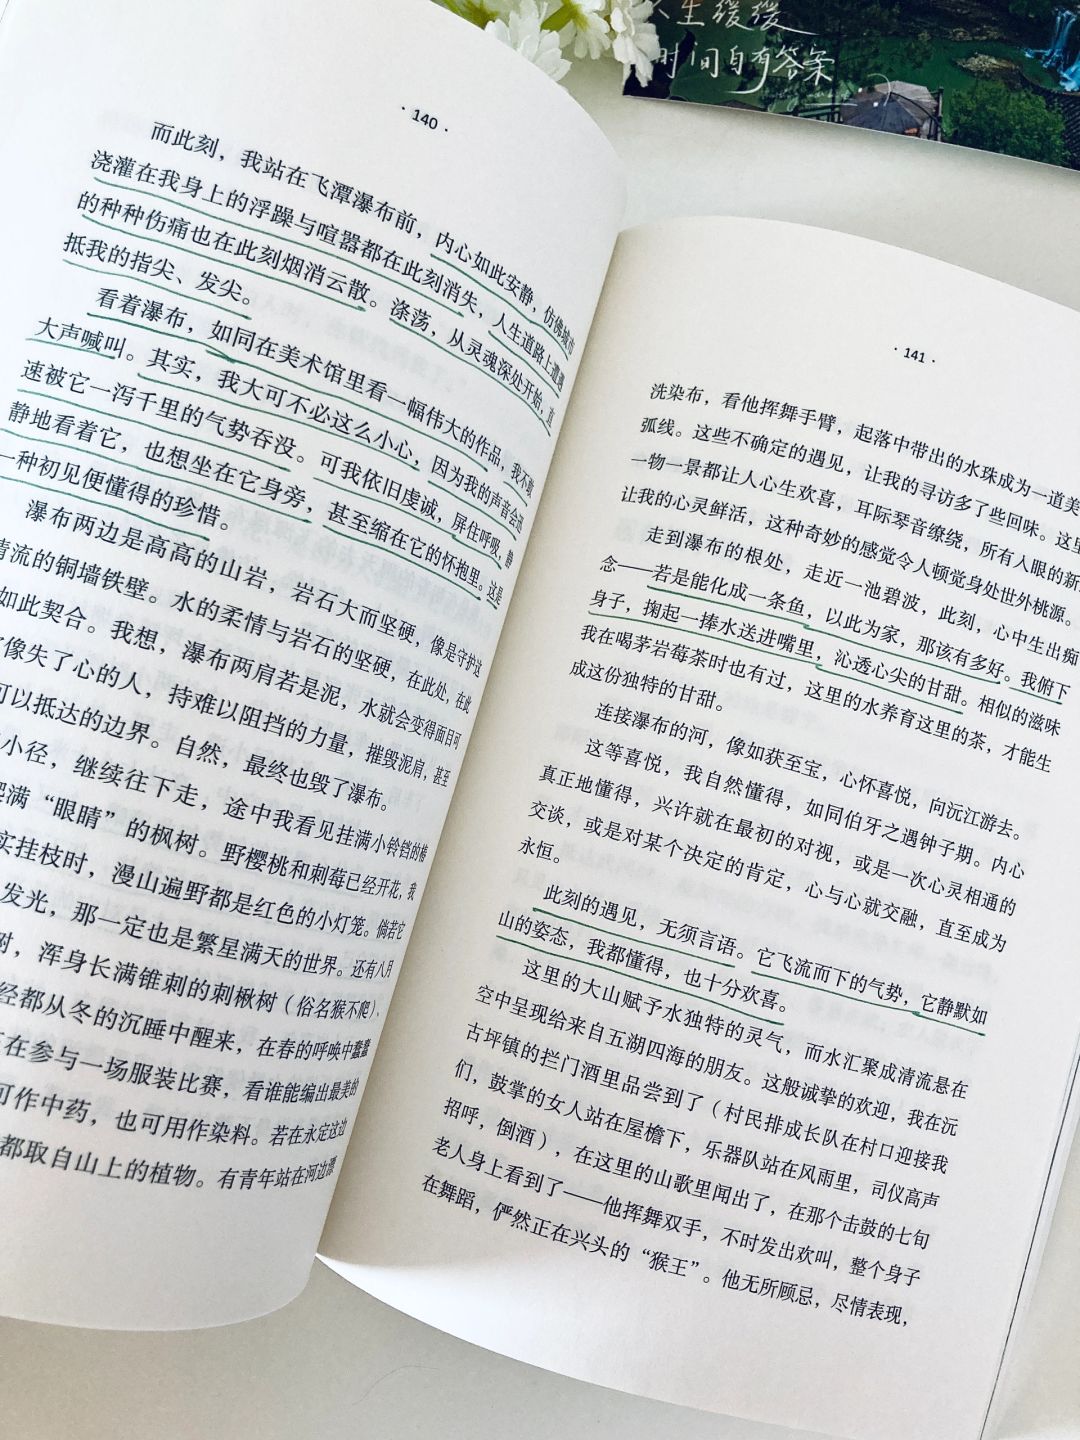 人生缓缓
时间自有答案
·140·
而此刻，我站在飞潭瀑布前，内心如此安静，仿佛城市
浇灌在我身上的浮躁与喧嚣都在此刻消失，人生道路上遭遇
的种种伤痛也在此刻烟消云散。涤荡，从灵魂深处开始，直
抵我的指尖、发尖。
看着瀑布，如同在美术馆里看一幅伟大的作品，我不敢
大声喊叫。其实，我大可不必这么小心，因为我的声音会迅
速被它一泻千里的气势吞没。可我依旧虔诚，屏住呼吸，静
静地看着它，也想坐在它身旁，甚至缩在它的怀抱里。这是
一种初见便懂得的珍惜。
瀑布两边是高高的山岩，岩石大而坚硬，像是守护这
清流的铜墙铁壁。水的柔情与岩石的坚硬，在此处，在此
如此契合。我想，瀑布两肩若是泥，水就会变得面目可
像失了心的人，持难以阻挡的力量，摧毁泥肩，甚至
可以抵达的边界。自然，最终也毁了瀑布。
小径，继续往下走，途中我看见挂满小铃铛的
满“眼睛”的枫树。野樱桃和刺莓已经开花，我
实挂枝时，漫山遍野都是红色的小灯笼。倘若它
发光，那一定也是繁星满天的世界。还有八月
树，浑身长满锥刺的刺楸树（俗名猴不爬），
经都从冬的沉睡中醒来，在春的呼唤中蠢蠢
在参与一场服装比赛，看谁能编出最美的
可作中药，也可用作染料。若在永定这边
都取自山上的植物。有青年站在河边漂
·141·
洗染布，看他挥舞手臂，起落中带出的水珠成为一道美
弧线。这些不确定的遇见，让我的寻访多了些回味。这里
一物一景都让人心生欢喜，耳际琴音缭绕，所有人眼的新
让我的心灵鲜活，这种奇妙的感觉令人顿觉身处世外桃源。
走到瀑布的根处，走近一池碧波，此刻，心中生出痴
念——若是能化成一条鱼，以此为家，那该有多好。我俯下
身子，掬起一捧水送进嘴里，沁透心尖的甘甜。相似的滋味
我在喝茅岩莓茶时也有过，这里的水养育这里的茶，才能生
成这份独特的甘甜。
连接瀑布的河，像如获至宝，心怀喜悦，向沅江游去。
这等喜悦，我自然懂得，如同伯牙之遇钟子期。内心
真正地懂得，兴许就在最初的对视，或是一次心灵相通的
交谈，或是对某个决定的肯定，心与心就交融，直至成为
永恒。
此刻的遇见，无须言语。它飞流而下的气势，它静默如
山的姿态，我都懂得，也十分欢喜。
这里的大山赋予水独特的灵气，而水汇聚成清流悬在
空中呈现给来自五湖四海的朋友。这般诚挚的欢迎，我在沅
古坪镇的拦门酒里品尝到了（村民排成长队在村口迎接我
们，鼓掌的女人站在屋檐下，乐器队站在风雨里，司仪高声
招呼，倒酒），在这里的山歌里闻出了，在那个击鼓的七旬
老人身上看到了——他挥舞双手，不时发出欢叫，整个身子
在舞蹈，俨然正在兴头的“猴王”。他无所顾忌，尽情表现，